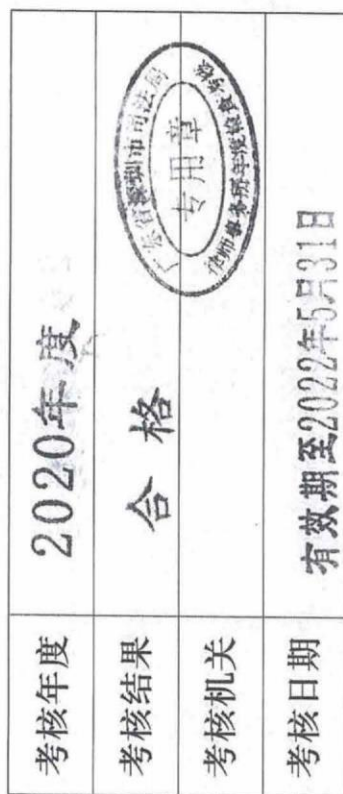 考核年度 2020年度
考核结果 合格
考核机关
广东省深圳市司法局
专用章
律师事务所年度检查考核
考核日期 有效期至2022年5月31日